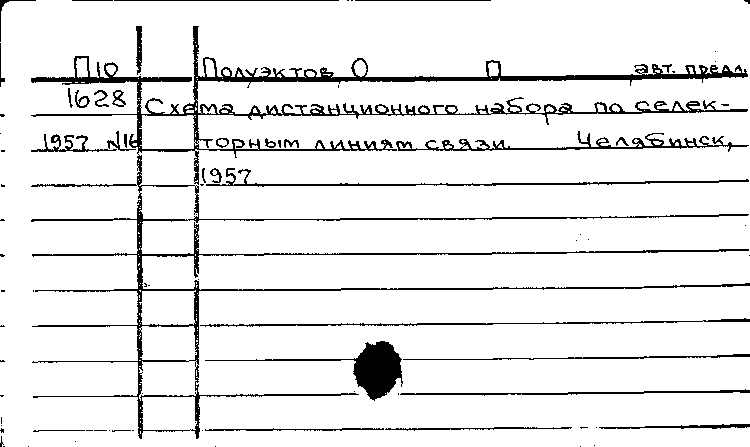 П10 Полуэктов О П авт. предл.
1628 Схема дистанционного набора по селек-
1957 N16 торным линиям связи. Челябинск,
1957